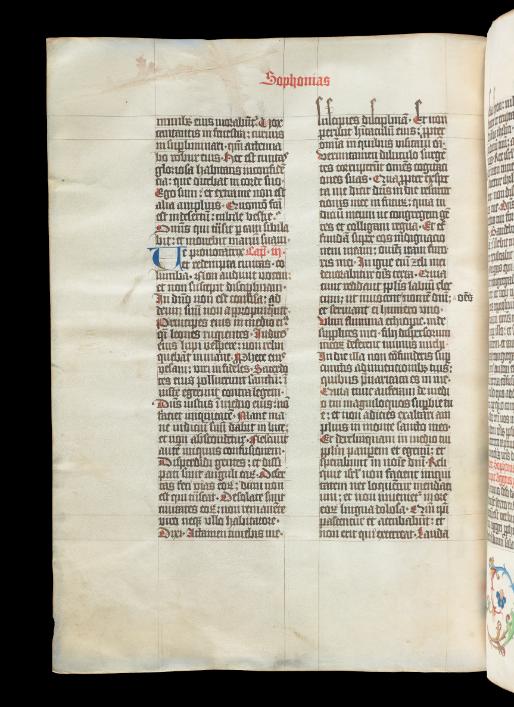 Sophonias
minibꝫ eius morabit̄. Uox
cantantis in fenestra: coruus
in supliminari: qm̄ attenua
bo robur eius. Hec est ciuitas
gloriosa habitans in confidē
tia: que dicebat in corde suo:
Ego sum: et extra me non est
alia amplius. Quomō fac
est in desertū: cubile bestie.
Omīs qui trāsit p eam sibila
bit: et mouebit manū suam.
Ue prouocatrix Cap. iii.
et redempta ciuitas: co
lumba. Non audiuit uocem:
et non suscepit disciplinam.
In dn̄o non est confisa: ad
deum suū non appropinquit.
Principes eius in medio ei᷒
q̄si leones rugientes. Iudices
eius lupi uespere: non relin
quebāt in mane. Prophete ei᷒
uesani: uiri infideles. Sacerdo
tes eius polluerunt sanctū: ī
iuste egerunt contra legem.
Dn̄s iustus ī medio eius: nō
faciet iniquitatē. Mane ma
ne iudiciū suū dabit in luce:
et non abscondetur. Nesciuit
autē iniquus confusionem.
Disperdidi gentes: et dissi
pati sunt anguli eoꝝ. Deser
tas feci uias eoꝝ: dum non
est qui trāseat. Desolate sunt
ciuitates eoꝝ: non remanēte
uiro neqꝫ ullo habitatore.
Dixi. Attamen timebis me.
suscipies disciplinā. Et non
peribit hitaculū eius: ppter
om̄ia in quibus uisitaui eā.
Uerumtamen diluculo surgē
tes corruperūt omēs cogitati
ones suas. Quapropter expec
ta me dicit dn̄s in die resurrec
tionis mee in futurū: quia iu
diciū meum ut congregem gē
tes et colligam regna. Et ef
fundā super eos indignatio
nem meam: omēs iram furo
ris mei. In igne eni᷒ zeli mei
deuorabitur om̄s terra. Quia
tunc reddam pplis labiū elec
tum: ut inuocent nomē dn̄i: om̄s
et seruiant ei humero uno.
Ultra flumina ethiopie: inde
supplices mei: filij dispersorum
meoꝝ deferent munus michi.
In die illa non cōfunderis sup
cunctis adinuentionibꝫ tuis:
quibus p̄uaricata es in me.
Quia tunc auferam de medi
o tui magniloquos supbie tu
e: et non adicies exaltari am
plius in monte sancto meo.
Et derelinquam in medio tui
ppl̄m paupem et egenū: et
sperabunt in noīe dn̄i. Reli
quie isrl̄ non facient iniqui
tatem nec loquentur mendati
um: et non inuenietᷣ in ore
eoꝝ lingua dolosa. Qm̄ ip̄i
pascentur et accubabūt: et
non erit qui exterreat. Lauda